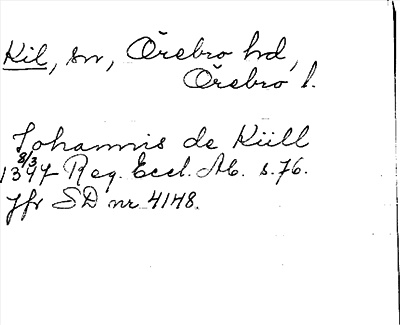 Kil, sn, Örebro hd,
Örebro l.
Johannis de Küll
8/3
1347 Reg. Eccl. Ab. s. 76.
Jfr SD nr 4148.